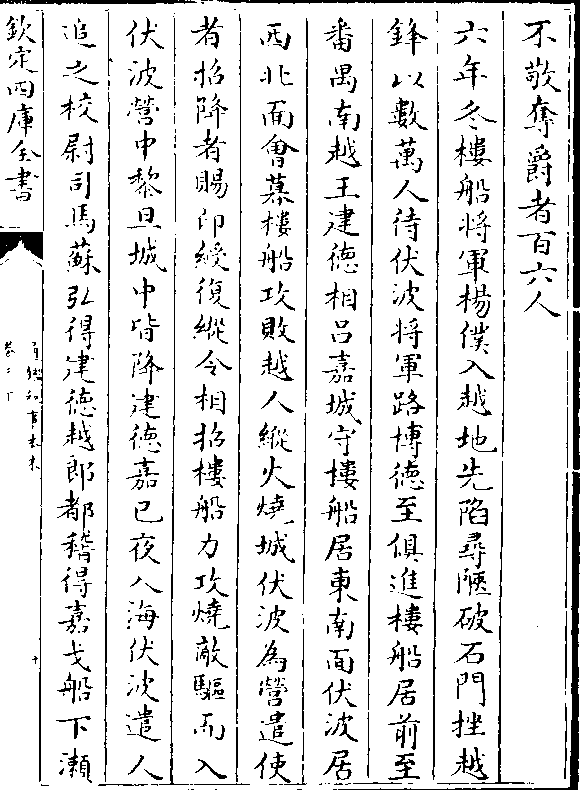 不敬奪爵者百六人
六年冬樓船將軍楊僕入越地先陷尋陿破石門挫越
鋒以數萬人待伏波將軍路博德至俱進樓船居前至
番禺南越王建德相呂嘉城守樓船居東南面伏波居
西北面會暮樓船攻敗越人縱火燒城伏波為營遣使
者招降者賜印綬復縱令相招樓船力攻燒敵驅而入
伏波營中黎旦城中皆降建德嘉已夜入海伏波遣人
追之校尉司馬蘇弘得建德越郎都稽得嘉戈船下瀨
欽定四庫全書
卷二下
十